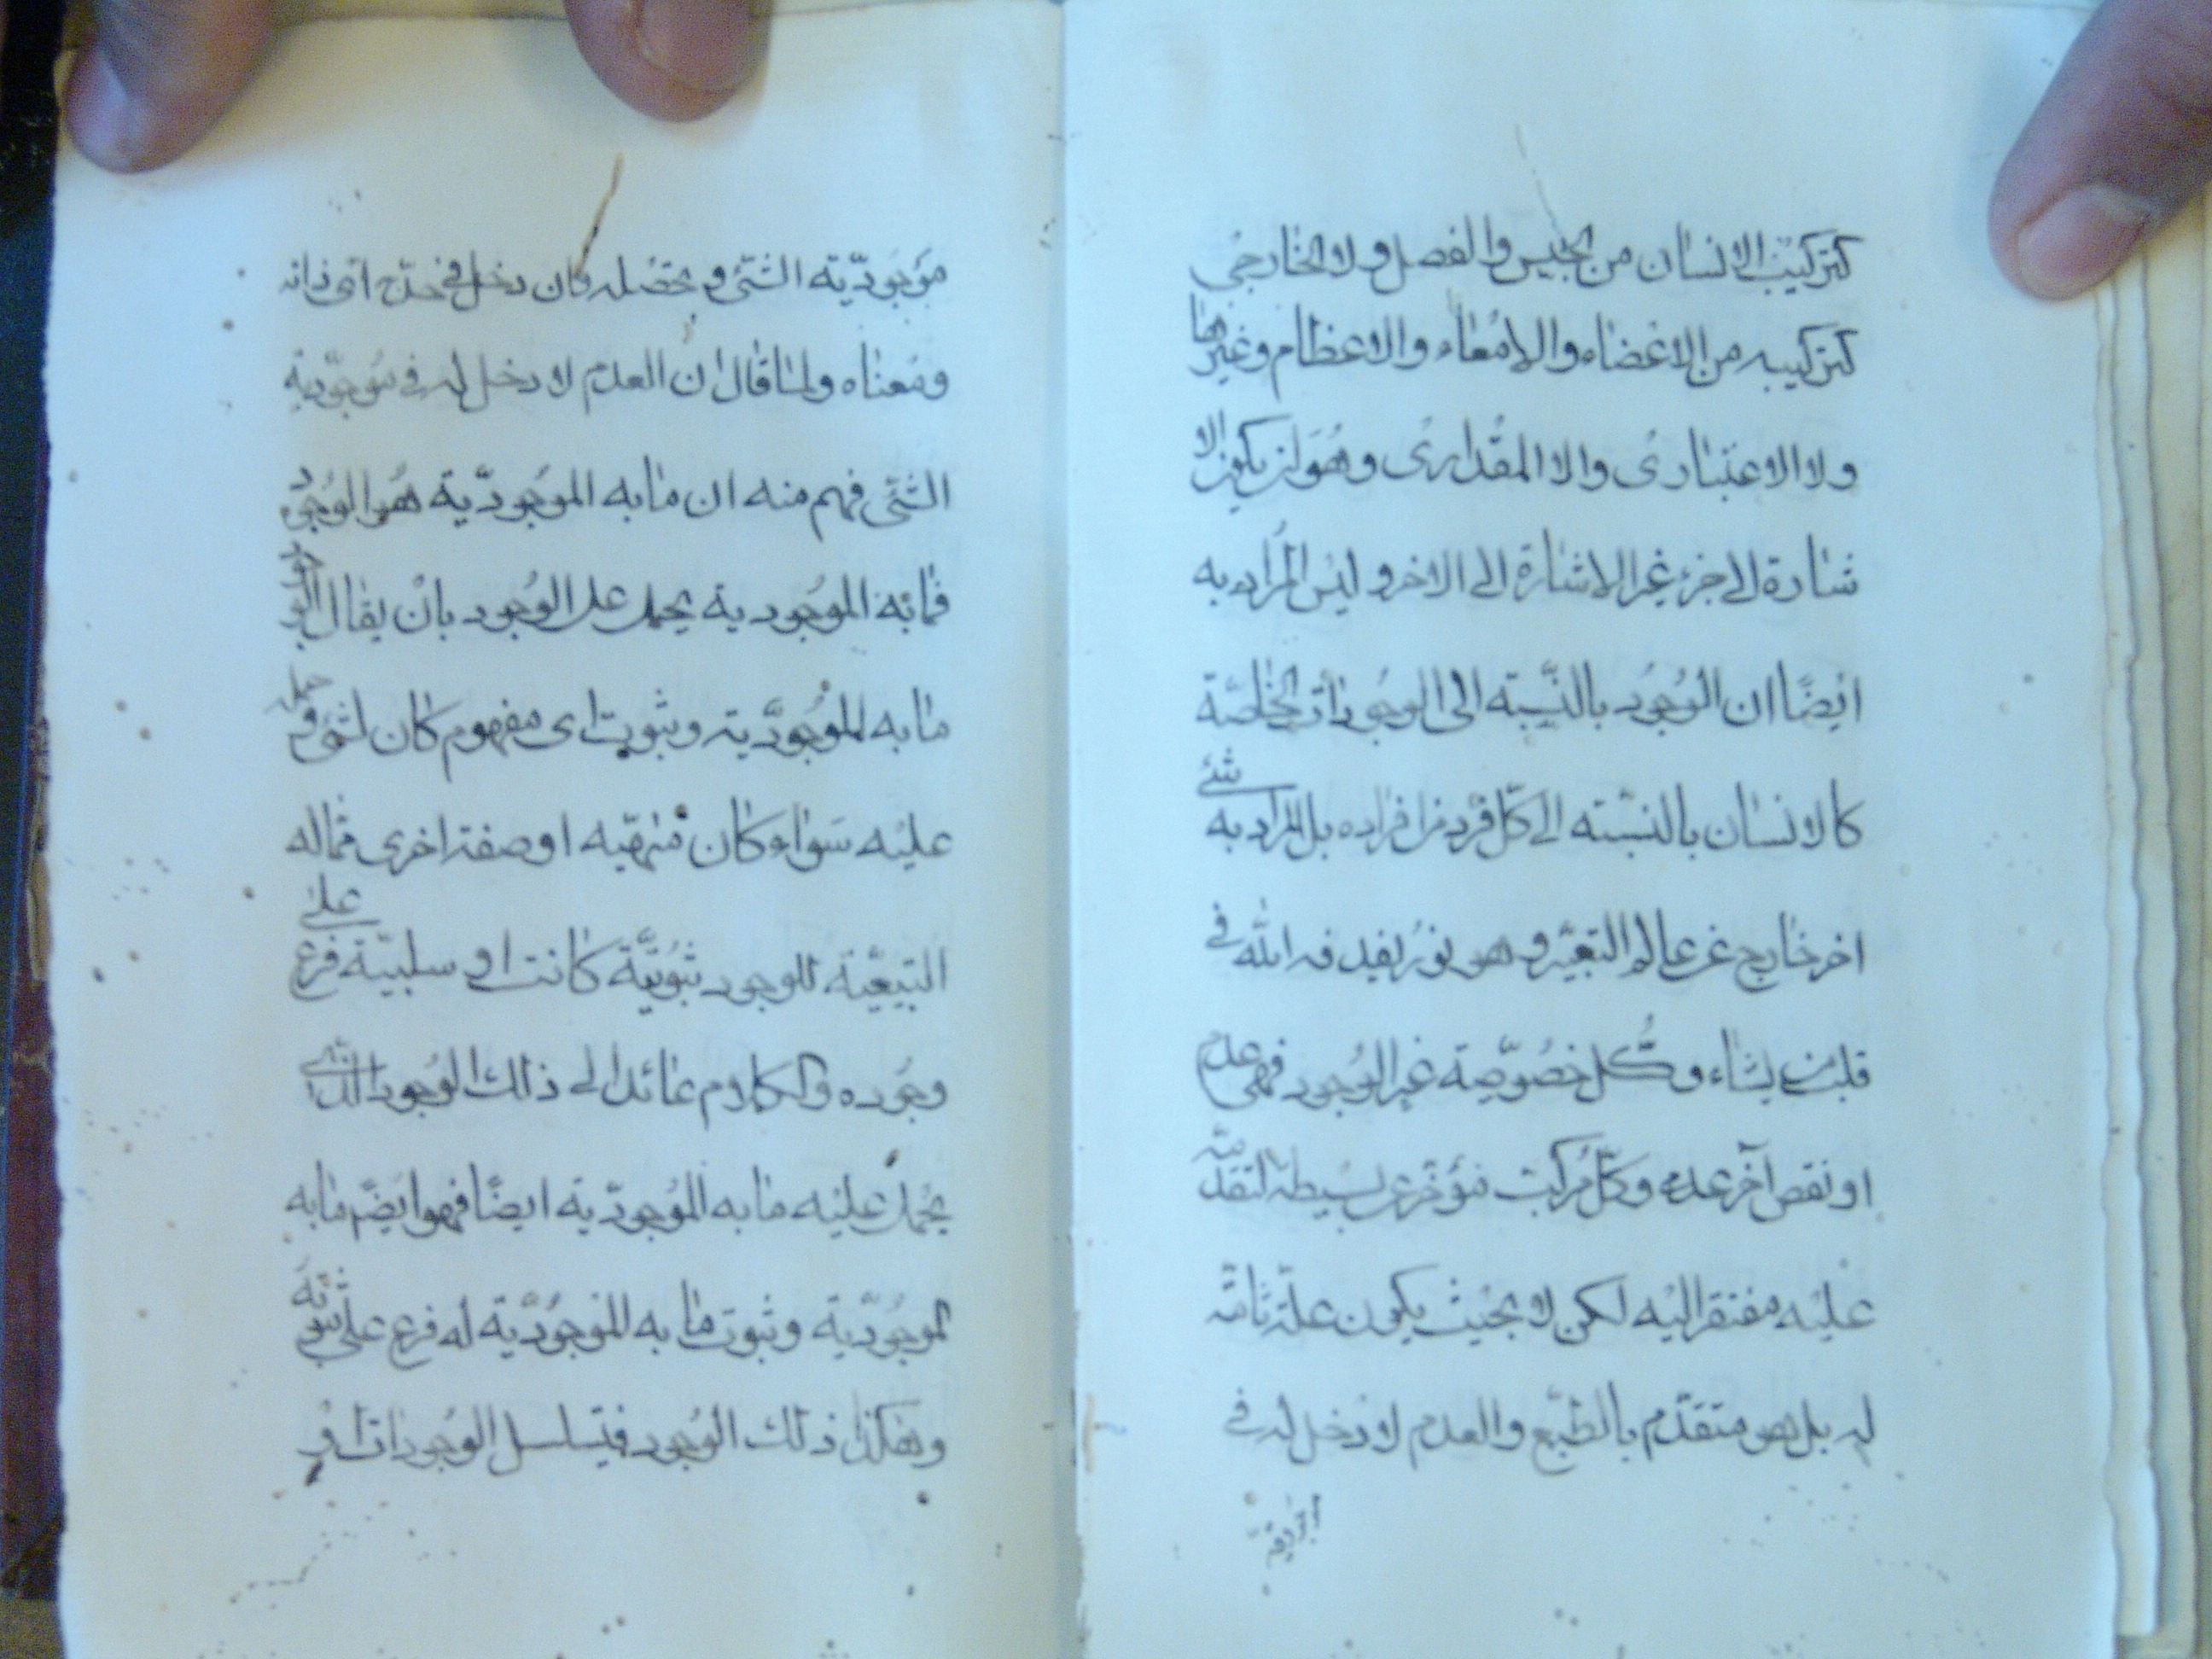 كتركيب الانسان من الجنس والفصل ولا الخارجى
كتركيبه من الاعضاء والامعاء والاعظام وغيرها
ولا الاعتبارى والا المقدارى وهو ان يكون الا
شارة لاجزء غير الاشارة الى الاخر و ليس المراد به
ايضا ان الوجود بالنسبته الى الوجودات الخاصة
كالانسان بالنسبته الى كل فرد من افراده بل المراد به شئ
اخر خارج عن عالم التعبير و هو نور يفيد فه الله فى
قلب من يشاء و كل خصوصية غير الوجود فهى عدم
او نقص آخر عدم و كل مركب مؤخر عن بسيطه لتقدمه
عليه مفتقر اليه لكن لا بحيث يكون علة تامة
له بل هو متقدم بالطبع والعدم لا دخل له فى
موجودية الشئ و تحصله كان دخل فى حده اى ذاته
ومعناه ولما قال ان العدم لا دخل له فى موجودية
الشئ فهم منه ان ما به الموجودية هو الوجود
فما به الموجودية يحمل على الوجود بان يقال الوجود
ما به الموجودية و ثبوت اى مفهوم كان لشئ و حمله
عليه سواء كان مهيه او صفة اخرى فما له
التبعية للوجود ثبوتية كانت او سلبية فرع على
وجوده والكلام عائد الى ذلك الوجود الذى
يحمل عليه ما به الموجودية ايضا فهو ايضا ما به
لموجودية و ثبوت ما به الموجودية له فرع على ثبوته
وهكذا ذلك الوجود فيتسلسل الوجودات او